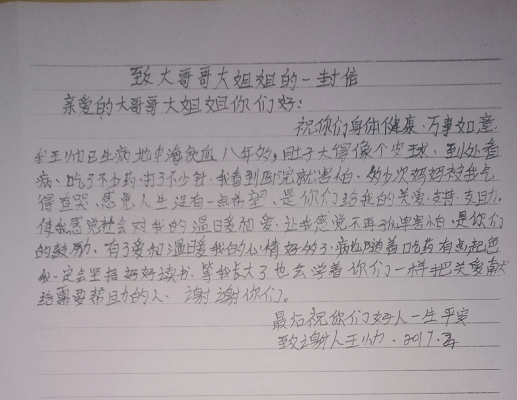 致大哥哥大姐姐的一封信
亲爱的大哥哥大姐姐你们好：
祝你们身体健康·万事如意，
我王帅已生病地中海贫血八年多，肚子大得像个皮球，到处看
病、吃了不少药·打了不少针，我看到医院就害怕、多少次妈妈被我气
得直哭、感觉人生没有一点希望、是你们给我的关爱·支持·支助。
使我感觉社会对我的温暖和爱·让我感觉不再孤单害怕·是你们
的鼓励、有了爱和温暖我的心情好多了·病也随着口吃药有些起色
我一定会坚持好好读书、等我长大了也去学着你们一样把关爱献
给需要帮助的人、谢谢你们。
最后祝你们好人一生平安
致谢人王帅、2017.